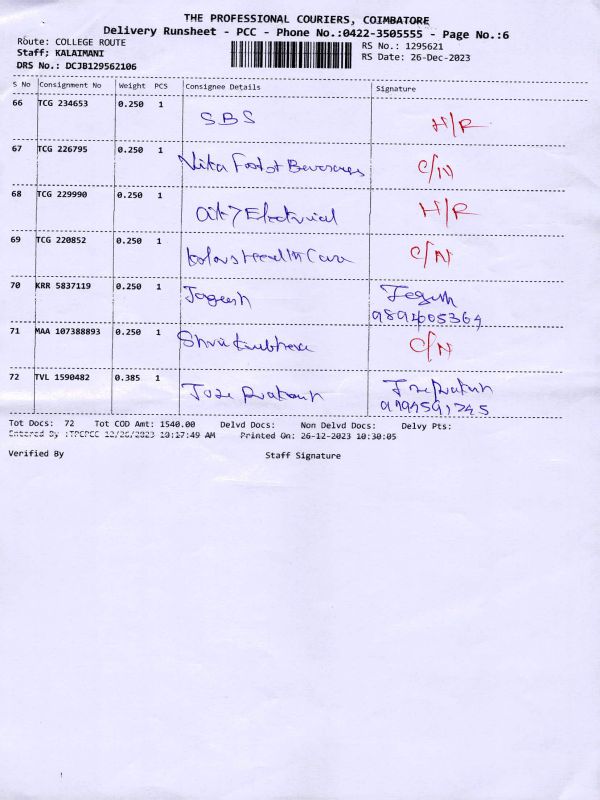 THE PROFESSIONAL COURIERS, COIMBATORE
Delivery Runsheet - PCC - Phone No.:0422-3505555 - Page No.:6
Route: COLLEGE ROUTE
RS No.: 1295621
Staff; KALAIMANI
RS Date: 26-Dec-2023
DRS No.: DCJB129562106
S No Consignment No Weight PCS Consignee Details Signature
66 TCG 234653 0.250 1
SBS H/R
67 TCG 226795 0.250 1
C/N
68 TCG 229990 0.250 1
H/R
69 TCG 220852 0.250 1
C/N
70 KRR 5837119 0.250 1
Jogeesh
9894605364
71 MAA 107388893 0.250 1
C/N
72 TVL 1590482 0.385 1
Tot Docs: 72 Tot COD Amt: 1540.00 Delvd Docs: Non Delvd Docs: Delvy Pts:
Entered By :TPCPCC 12/26/2023 10:17:49 AM Printed On: 26-12-2023 10:30:05
Verified By Staff Signature